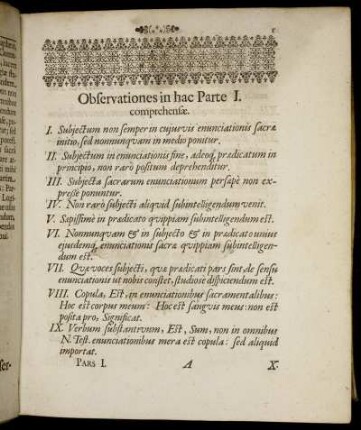 Observationes in hac Parte I.
comprehensæ.
I. Subjectum non semper in cujusvis enunciationis sacræ
initio, sed nonnunqvam in medio ponitur.
II. Subjectum in enunciationis fine, adeoq; prædicatum in
principio, non rarò positum deprehenditur.
III. Subjecta sacrarum enunciationum persæpè non ex-
presse ponuntur.
IV. Non rarò subjecti aliqvid subintelligendum venit.
V. Sæpissimè in prædicato qvippiam subintelligendum est.
VI. Nonnunqvam & in subjecto & in prædicato unius
ejusdemq; enunciationis sacræ qvippiam subintelligen-
dum est.
VII. Qvæ voces subjecti, qvæ prædicati pars sint, de sensu
enunciationis ut nobis constet, studiosè dispiciendum est.
VIII. Copula, Est, in enunciationibus sacramentalibus:
Hoc est corpus meum: Hoc est sangvis meus: non est
posita pro, Significat.
IX. Verbum substantivum, Est, Sum, non in omnibus
N. Test. enunciationibus mera est copula: sed aliquid
importat.
PARS I. A X.